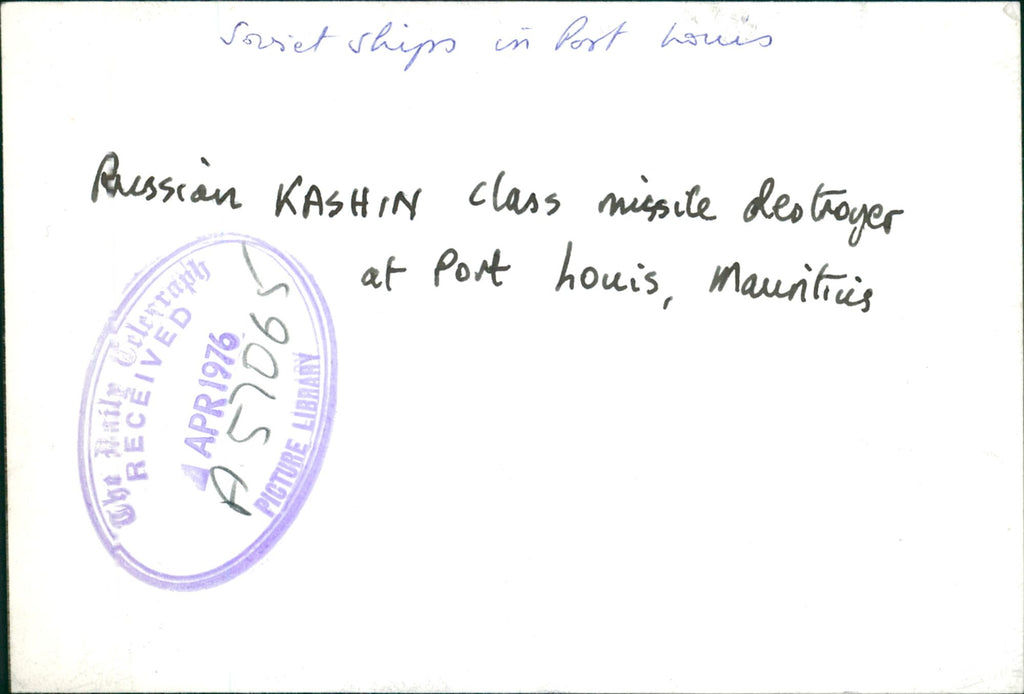 Soviet ships in Port Louis
Russian KASHIN class missile destroyer
at Port Louis, Mauritius
The Daily Telegraph
RECEIVED
APR 1976
A 57065
PICTURE LIBRARY